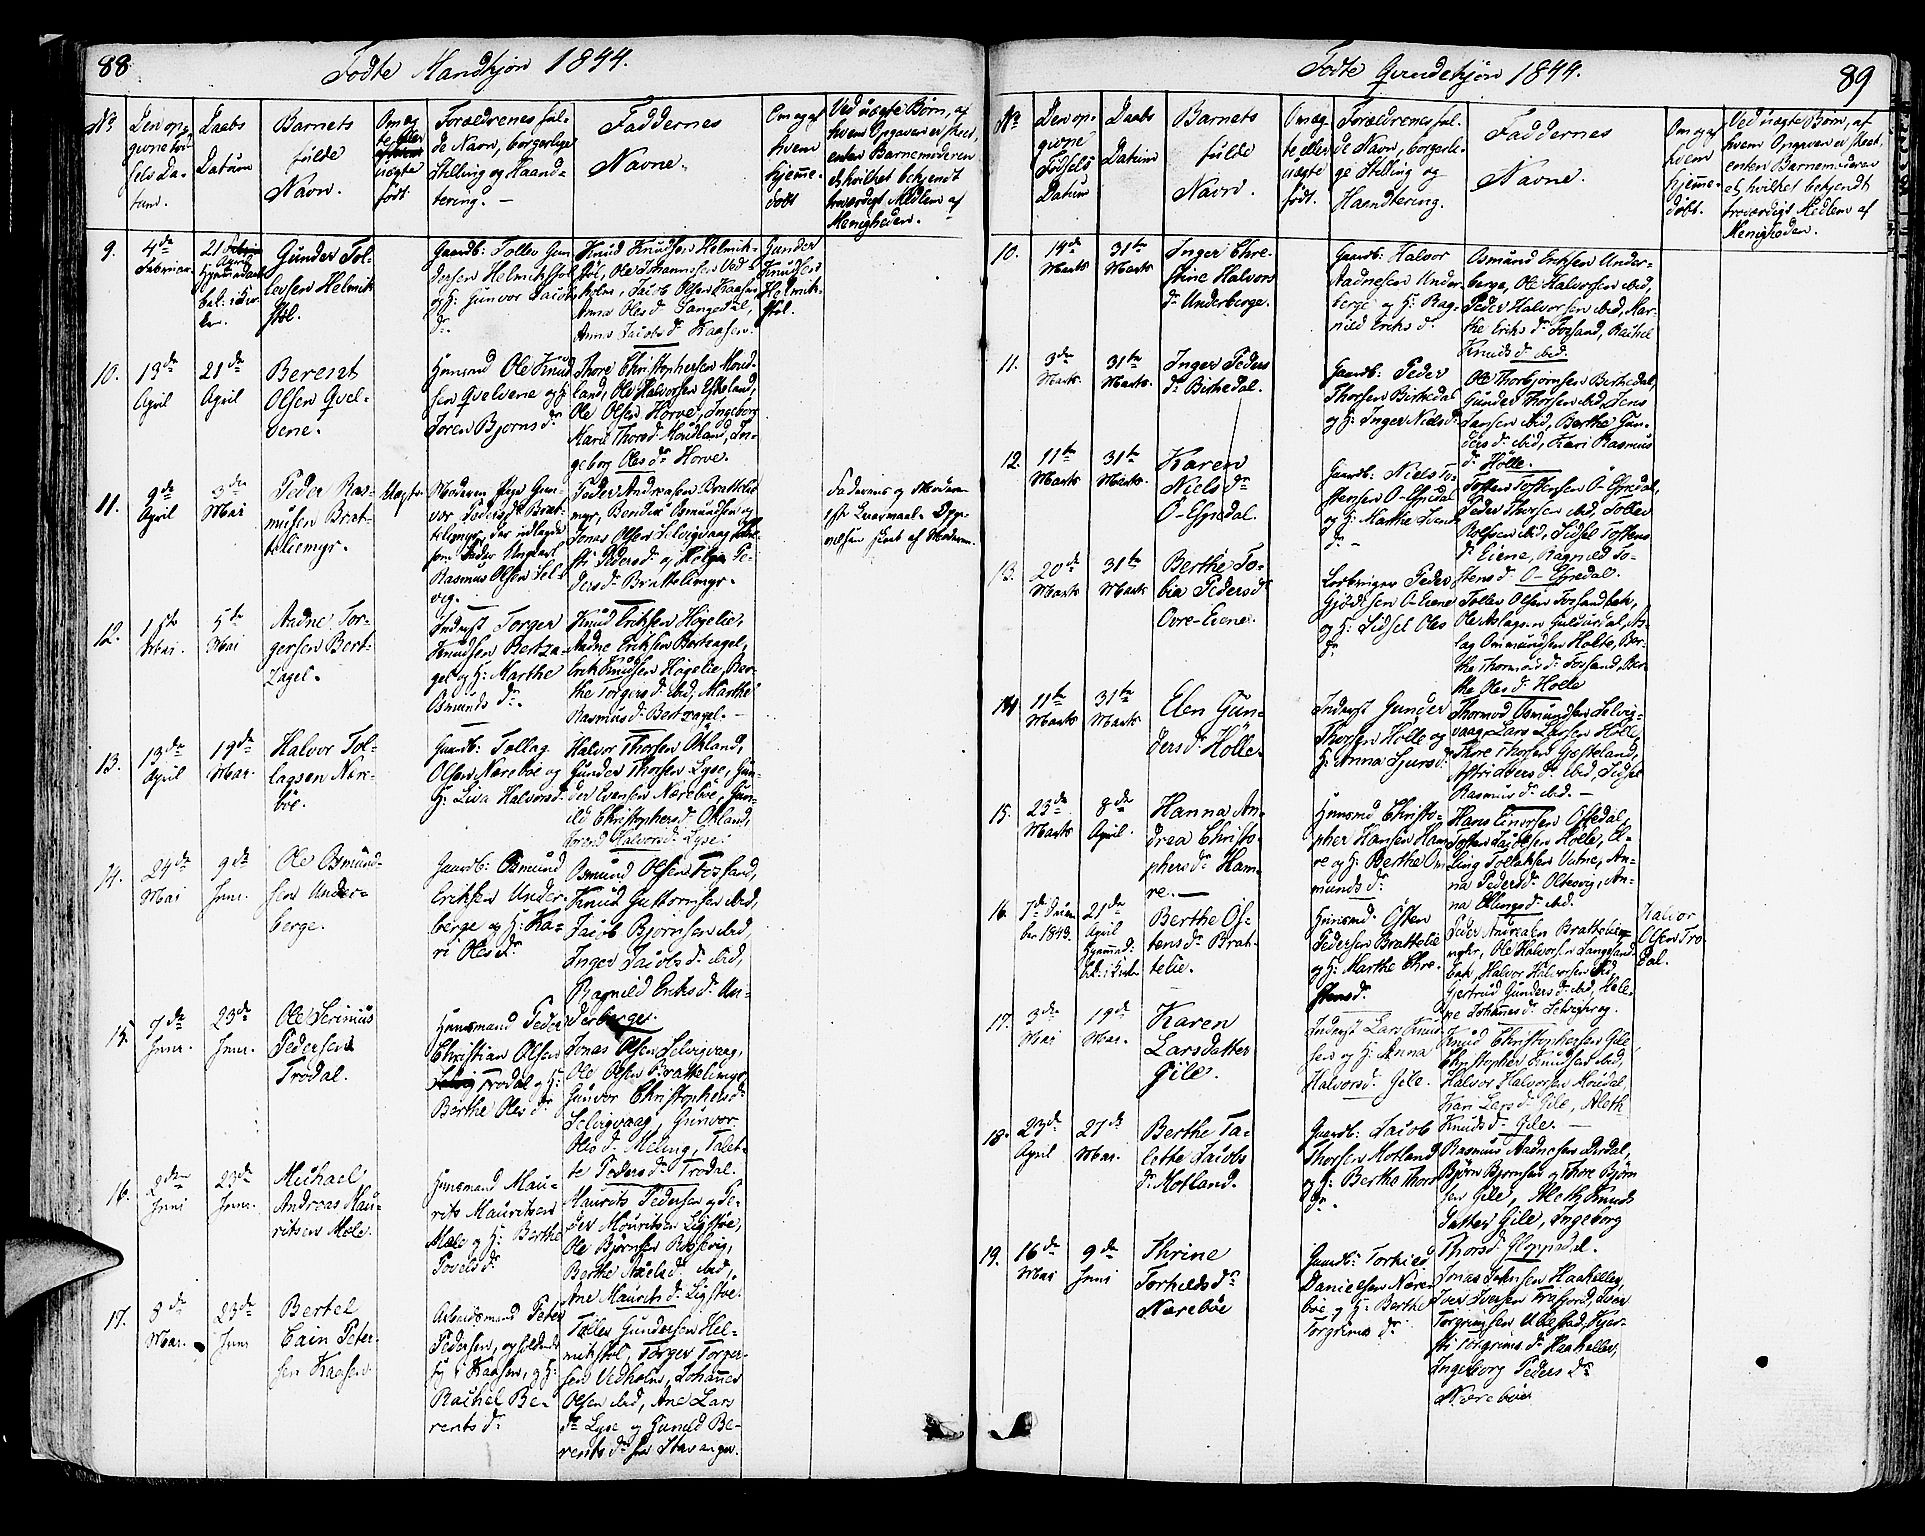 88
Fødte Mandkjøn 1844.
No
Den op-
givne Fød-
sels Da-
tum.
Daabs
Datum
Barnets
fulde
Navn.
Om æg-
te eller
uægte
født
Forældrenes ful-
de Navn, borgerlige
Stilling og Haand-
tering. —
Faddernes
Navne.
Om og af
hvem
hjemme-
døbt
Ved uægte Børn, af
hvem Opgaven er skeet,
enten Barnemoderen
el. hvilket bekjendt
troværdigt Medlem af
Menigheden.
9.
4de
Februar.
21
April
Hjemmedøbt
Gunder Tol-
levsen Helmik-
støl.
Gaardb: Tollev Gun-
dersen Helmikstøl
og H: Gunvor Jacobs
Dr.
Knud Knudsen Helmik-
støl, Ole Johannesen Ved-
holm, Jacob Olsen Kaasen,
Anna Olesdr. Sangedal,
Anna Jacobsdr. Kaasen.
Gunder
Knudsen
Helmik-
støl.
10.
13de
April
21de
April
Berent
Olsen Qvel-
vene.
Huusmd Ole Knud
sen Qvelvene og H:
Søren Bjørnsdr.
Thore Christophersen Moud-
land, Ole Halvorsen Eskeland,
Ole Olsen Horve, Ingeborg
Marie Thorsdr. Moudland, In-
geborg Olesdr. Horve.
11.
9de
April
3de
Mai
Peder Ras-
musen Brat-
teliemyr.
Uægte.
Moderen Pige Gun-
vor Pedersdr. Brat-
telimyr, der udlagde
som Fader Ungkarl
Rasmus Olsen Sel-
vig.
Peder Andreasen Brattelie
myr, Osmundsen og
Jonas Olsen Selvigvaag
Pedersdr. og Helga Pe-
dersdr. Brattelimyr.
Faderens og Moderen
1ste Leiermaal. Opgi-
velsen skeet af Moderen.
12.
1ste
Mai.
5te
Mai
Aadne Tor-
gersen Bert-
zagel.
Inderst Torger
Knudsen Bertza-
gel og H: Marthe
Osmundsdr.
Knud Eriksen Høgelie,
Aadne Eriksen Bertzagel,
Erik Knudsen Høgelie, Ber-
the Torgersdr. ibid, Marthe
Rasmusdr. Bertzagel. —
13.
13de
April
19de
Mai.
Halvor Tol-
lagsen Nære-
bøe.
Gaardb: Tollag
Olsen Nærebøe og
H: Liva Halvorsdr.
Halvor Thorsen Økland,
Gunder Thorsen Lyse, Gun-
der Evensen Nærebøe, Gun-
ild Christophersdr. Økland,
Halvorsdr. Lyse.
14.
24de
Mai
9de
Juni.
Ole Osmund-
sen Under-
berge.
Gaardb: Osmund
Eriksen Under-
berge og H: Ka-
ri Olesdr.
Osmund Olsen Fossand,
Knud Guttormsen ibid,
Jacob Bjørnsen ibid,
Inger Jacobsdr. ibid,
Ragnild Eriksdr. Un-
derberge.
15.
7de
Juni.
23de
Juni.
Ole Serinius
Pedersen
Trodal.
Huusmand Peder
Christian Olsen
Trodal og H:
Berthe Olesdr.
Jonas Olsen Selvigvaag,
Ole Olsen Brattelimyr,
Gunvor Christophersdr.
Selvigvaag, Gunvor
Olesdr. Meling, Talet-
te Pedersdr. Trodal.
16.
2den
Juni
23de
Juni.
Michael
Andreas Mau-
ritsen Mæle.
Huusmand Mau-
rits Mauritsen
Mæle og H: Berthe
Povelsdr.
Maurits Pedersen og Pe-
der Mouritsen Ligstøe,
Ole Bjørnsen Rossevig,
Berthe Axelsdr. ibid,
Ane Mauritsdr. Ligstøe.
17.
8de
Mai.
23de
Juni
Bertel
Cain Peter-
sen Kaasen
Arbeidsmand Peter
Pedersen, opholdende
sig i Kaasen, og H:
Rachel Be-
rentsdr.
Tollev Gundersen Hel-
mikstøl, Torger Torger-
sen Vedholm, Johannes
Olsen ibid, Ane Lars
dr. Lyse og Gunild Be-
rentsdr. fra Stavanger.
89
Fødte Qvindekjøn 1844.
No
Den op-
givne
Fødsels
Datum
Daabs
Datum
Barnets
fulde
Navn.
Om æg
te eller
uægte
født.
Forældrenes ful-
de Navn, borgerli-
ge Stilling og
Haandtering.
Faddernes
Navne.
Om og af
hvem
hjemme-
døbt.
Ved uægte Børn, af
hvem Opgaven er skeet,
enten Barnemoderen
el. hvilket bekjendt
troværdigt Medlem af
Menigheden.
10.
14de
Marts
31te
Marts
Inger Chre-
stine Halvors
dr. Underberge.
Gaardb: Halvor
Aadnesen Under-
berge og H: Rag-
nild Eriksdr.
Osmund Eriksen Under-
berge, Ole Halvorsen ibid,
Peder Halvorsen ibid, Mar-
the Eriksdr. Fossand, Rachel
Knudsdr. ibid.
11.
3de
Marts.
31te
Marts.
Inger Peders
dr. Birkedal.
Gaardb: Peder
Thorsen Birkedal
og H: Inger Nielsdr.
Ole Thorbjørnsen Birkedal,
Gunder Thorsen ibid, Jens
Jansen ibid, Berthe Gun-
dersdr. ibid, Kari Rasmus
dr. Hølle.
12.
11te
Marts
31te
Marts.
Karen
Nielsdr.
O-Espedal.
Gaardb: Niels To-
stensen O-Espedal
og H: Marthe Svends
dr. —
Tosten Tostensen O-Espedal,
Peder Thorsen ibid, Tollev
Rolfsen ibid, Sidsel Tostens
dr. Eiene, Ragnild To-
stensdr. O-Espedal.
13.
20de
Marts
31te
Marts
Berthe To-
bia Pedersdr.
Øvre-Eiene.
Peder
Gjødesen O-Eiene
og H: Sidsel Oles
dr.
Tollev Olsen Fossandbak,
Ole Aslagsen, As-
lag Ommundsen Holte, Ber-
the Thormodsdr. Fossand, Ber-
the Olesdr. Holle
14
11te
Marts
31te
Marts
Elen Gun-
dersdr. Hølle.
Inderst Gunder
Thorsen Hølle og
H: Anna Sjursdr.
Thormod Osmundsen Selvig-
vaag, Lars Larsen Hølle,
Thore Thorsen Gjesteland,
Astrid Iversdr. ibid, Sidsel
Rasmusdr. ibid. —
15.
23de
Marts
8de
April.
Hanna An-
drea Christo-
phersdr. Ham-
re.
Huusmd Christo-
pher Hansen Ham-
re og H: Berthe Om-
mundsdr.
Hans Einersen Oftedal,
Tosten Hølle, El-
ling Tollaksen Vatne, An-
na Pedersdr. Oltesvig, An-
na Ellingsdr. ibid.
16.
7de Decem-
ber 1843.
21de
April
Hjemmed.
Berthe Øs-
tensdr. Brat-
telie.
Huusmd. Østen
Pedersen Brattelie
og H: Marthe Chre-
stensdr.
Peder Andreasen Brattelie-
myr, Ole Halvorsen Langeland-
bak, Halvor Halvorsen ibid,
Gjertrud Gundersdr. ibid, Hele-
ne Johannesdr. Selvigvog.
Halvor
Olsen Tro-
dal.
17.
3de
Mai
19de
Mai.
Karen
Larsdatter
Gile.
Inderst Lars Knud
sen og H: Anna
Halvorsdr. Gile.
Knud Christophersen Gile
Christopher Knudsen ibid,
Halvor Halvorsen Moudal,
Kari Larsdr. Gile, Aleth
Knudsdr. Gile. —
18.
23de
April
27de
Mai.
Berthe Ta-
lethe Jacobs
dr. Motland.
Gaardb: Jacob
Thorsen Motland
og H: Berthe Thors
dr.
Rasmus Aadnesen Dirdal,
Bjørn Bjørnsen og Thore Bjørn
sen Gile, Aleth Knuds
datter Gile, Ingeborg
Thorsdr. Gloppedal.
19.
16de
Mai
9de
Juni
Thrine
Torkildsdr.
Nærebøe
Gaardb: Torkild
Danielsen Nære-
bøe og H: Berthe
Torgrimsdr.
Jonas Johnsen Haahellen,
Iver Iversen Frafjord, Iver
Torgrimsen Ubostad, Kjer-
sti Torgrimsdr. Haahellen,
Ingeborg Pedersdr.
Nærebøe.